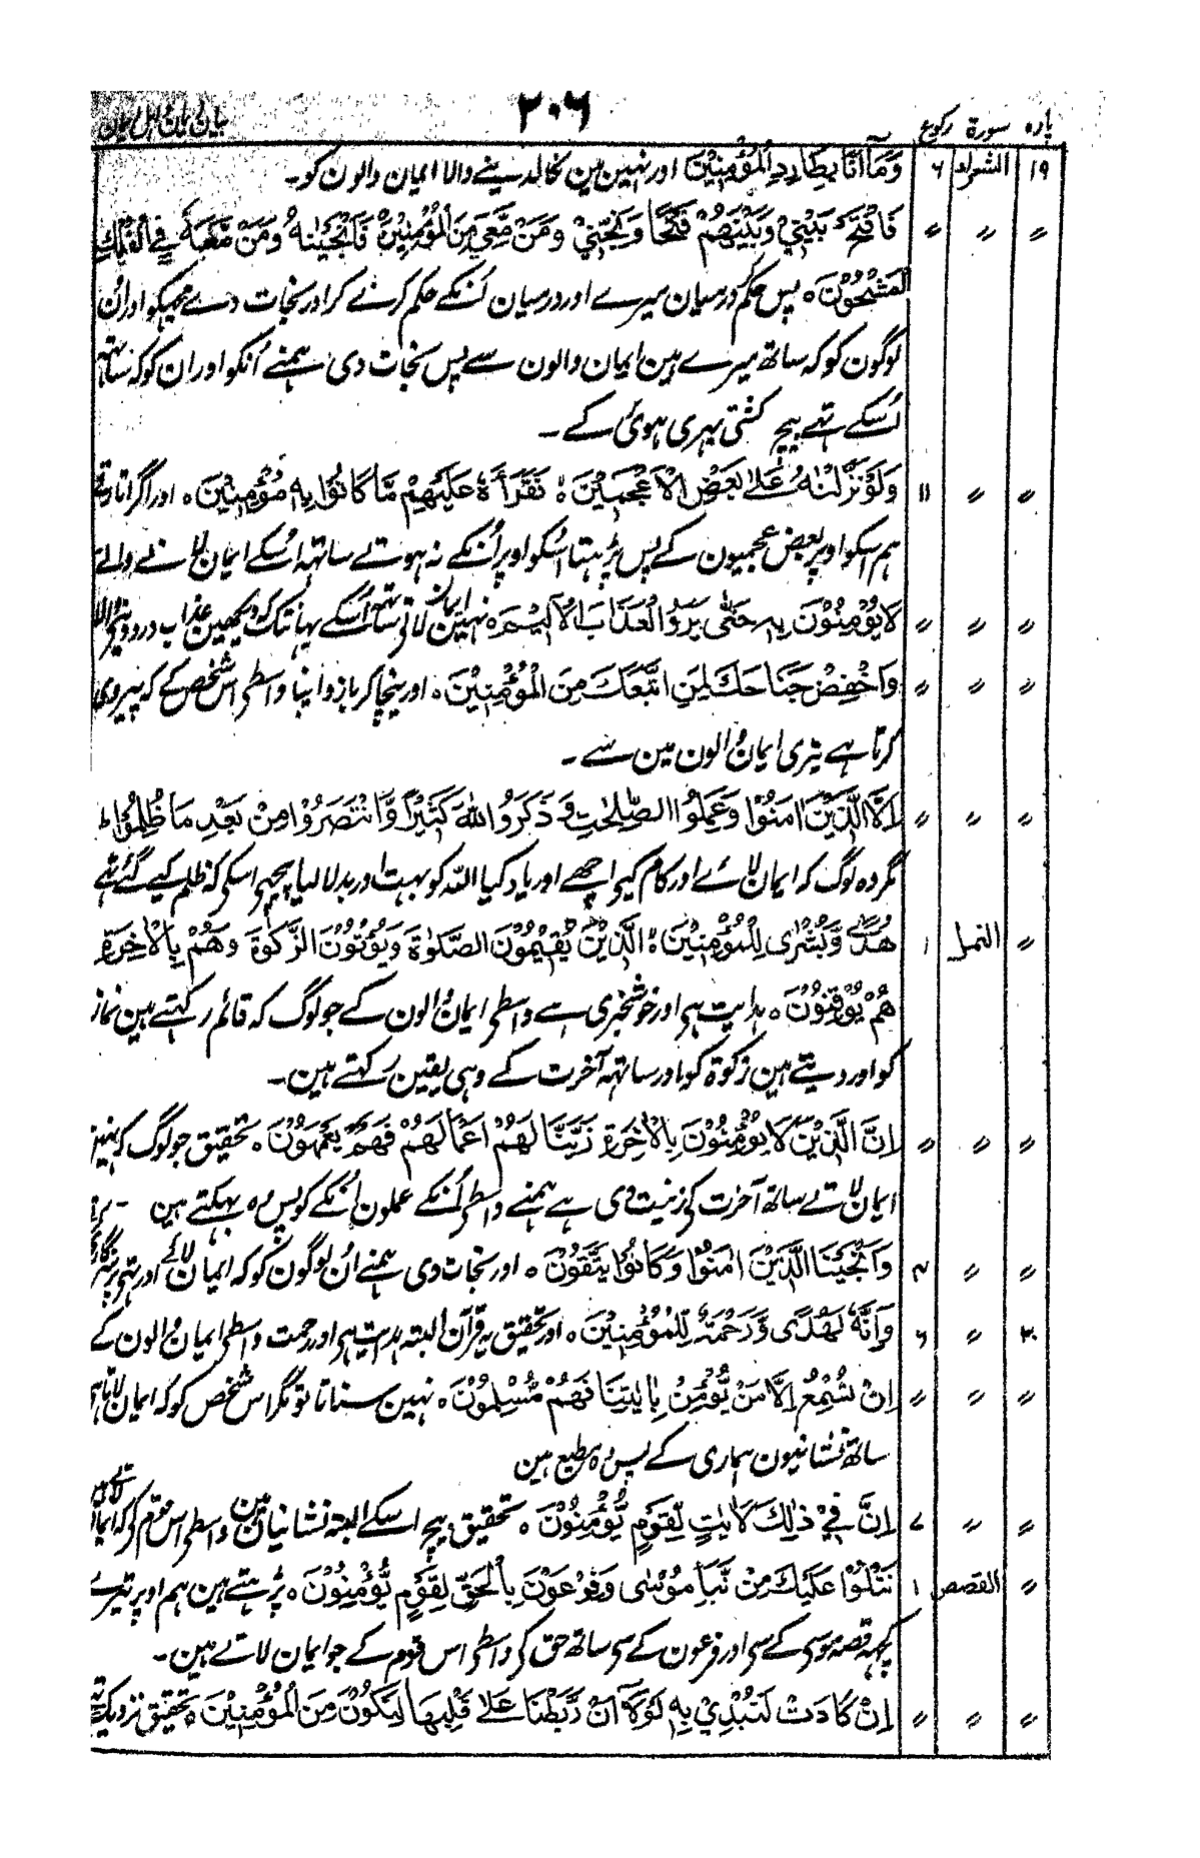 پارہ سورۃ رکوع ۲۰۶ بیان ایمان اہل ایمان
۱۹ الشعراء ۶ وَمَآ اَنَا بِطَارِدِ الْمُؤْمِنِيْنَ اور نہین مین نکالدینے والا ایمان والون کو۔
〃 〃 〃 فَافْتَحْ بَيْنِيْ وَبَيْنَهُمْ فَتْحًا وَّنَجِّنِيْ وَمَنْ مَّعِيَ مِنَ الْمُؤْمِنِيْنَ فَاَنْجَيْنٰهُ وَمَنْ مَّعَهٗ فِي الْفُلْكِ
الْمَشْحُوْنِ ہ پس حکم کر درمیان میرے اور درمیان اُنکے حکم کرنے کر اور نجات دے مجہکو اور اُن
لوگون کو کہ ساتھ میرے ہین ایمان والون سے پس نجات دی ہمنے اُنکو اور ان کو کہ ساتہہ
اُسکے تھے بیچ کشتی بہری ہوئی کے ۔
〃 〃 ۱۱ وَلَوْ نَزَّلْنٰهُ عَلٰى بَعْضِ الْاَعْجَمِيْنَ ہ فَقَرَاَهٗ عَلَيْهِمْ مَّا كَانُوْا بِهٖ مُؤْمِنِيْنَ ہ اور اگر اتارتے
ہم اسکو اوپر بعض عجمیون کے پس پڑہتا اسکو اوپر اُنکے نہ ہوتے ساتہہ اُسکے ایمان لانے والے
〃 〃 〃 لَا يُؤْمِنُوْنَ بِهٖ حَتّٰى يَرَوُا الْعَذَابَ الْاَلِيْمَ ہ نہین ایمان لاتے ساتہہ اُسکے یہانتک کہ دیکھین عذاب درد دینے والا
〃 〃 〃 وَاخْفِضْ جَنَاحَكَ لِمَنِ اتَّبَعَكَ مِنَ الْمُؤْمِنِيْنَ ہ اور نیچا کر بازو اپنا واسطے اس شخص کے کہ پیروی
کرتا ہے تیری ایمان والون مین سے ۔
〃 〃 〃 اِلَّا الَّذِيْنَ اٰمَنُوْا وَعَمِلُوا الصّٰلِحٰتِ وَذَكَرُوا اللّٰهَ كَثِيْرًا وَّانْتَصَرُوْا مِنْ بَعْدِ مَا ظُلِمُوْا ط
مگر وہ لوگ کہ ایمان لائے اور کام کیے اچھے اور یاد کیا اللہ کو بہت اور بدلا لیا پیچھے اسکے کہ ظلم کیے گئے تھے
〃 النمل ۱ هُدًى وَّبُشْرٰى لِلْمُؤْمِنِيْنَ ہ الَّذِيْنَ يُقِيْمُوْنَ الصَّلٰوةَ وَيُؤْتُوْنَ الزَّكٰوةَ وَهُمْ بِالْاٰخِرَةِ
هُمْ يُوْقِنُوْنَ ہ ہدایت ہے اور خوشخبری ہے واسطے ایمان والون کے جو لوگ کہ قائم رکہتے ہین نماز
کو اور دیتے ہین زکوۃ کو اور ساتہہ آخرت کے وہی یقین رکہتے ہین۔
〃 〃 〃 اِنَّ الَّذِيْنَ لَا يُؤْمِنُوْنَ بِالْاٰخِرَةِ زَيَّنَّا لَهُمْ اَعْمَالَهُمْ فَهُمْ يَعْمَهُوْنَ ہ تحقیق جو لوگ کہ نہین
ایمان لاتے ساتھ آخرت کے زینت دی ہے ہمنے واسطے اُنکے عملون اُنکے کو پس وہ بہکتے ہین ۔
〃 〃 ۴ وَاَنْجَيْنَا الَّذِيْنَ اٰمَنُوْا وَكَانُوْا يَتَّقُوْنَ ہ اور نجات دی ہمنے اُن لوگون کو کہ ایمان لائے اور تھے پرہیزگاری
۲۰ 〃 ۶ وَاِنَّهٗ لَهُدًى وَّرَحْمَةٌ لِّلْمُؤْمِنِيْنَ ہ اور تحقیق یہ قرآن البتہ ہدایت ہے اور رحمت واسطے ایمان والون کے
〃 〃 〃 اِنْ تُسْمِعُ اِلَّا مَنْ يُّؤْمِنُ بِاٰيٰتِنَا فَهُمْ مُّسْلِمُوْنَ ہ نہین سناتا تو مگر اس شخص کو کہ ایمان لاتا ہے
ساتھ نشانیون ہماری کے پس وہ مطیع ہین
〃 〃 ۷ اِنَّ فِيْ ذٰلِكَ لَاٰيٰتٍ لِّقَوْمٍ يُّؤْمِنُوْنَ ہ تحقیق بیچ اسکے البتہ نشانیان ہین واسطے اس قوم کے کہ ایمان لاتے
〃 القصص ۱ نَتْلُوْا عَلَيْكَ مِنْ نَّبَاِ مُوْسٰى وَفِرْعَوْنَ بِالْحَقِّ لِقَوْمٍ يُّؤْمِنُوْنَ ہ پڑہتے ہین ہم اوپر تیرے
کچہہ قصہ موسی کے سے اور فرعون کے سے ساتھ حق کے واسطے اس قوم کے جو ایمان لاتے ہین۔
〃 〃 〃 اِنْ كَادَتْ لَتُبْدِيْ بِهٖ لَوْلَآ اَنْ رَّبَطْنَا عَلٰى قَلْبِهَا لِتَكُوْنَ مِنَ الْمُؤْمِنِيْنَ ہ تحقیق نزدیک تھی